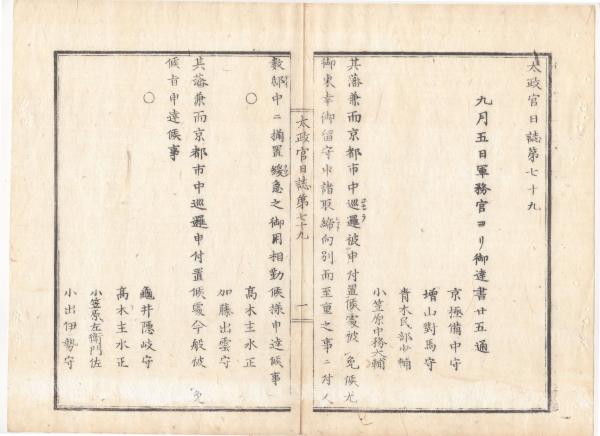 太政官日誌第七十九
九月五日軍務官ヨリ御達書廿五通
京極備中守
増山對馬守
青木民部少輔
小笠原中務大輔
其藩兼而京都市中巡邏被申付置候處被 免候尤
御東幸御留守中諸取締向別而至重之事ニ付人
太政官日誌第七十九 一
數邸中ニ備置緩急之御用相勤候様申達候事
○ 髙木主水正
加藤出雲守
其藩兼而京都市中巡邏申付置候處今般被 免
候旨申達候事
○ 龜井隱岐守
髙木主水正
小笠原左衛門佐
小出伊勢守